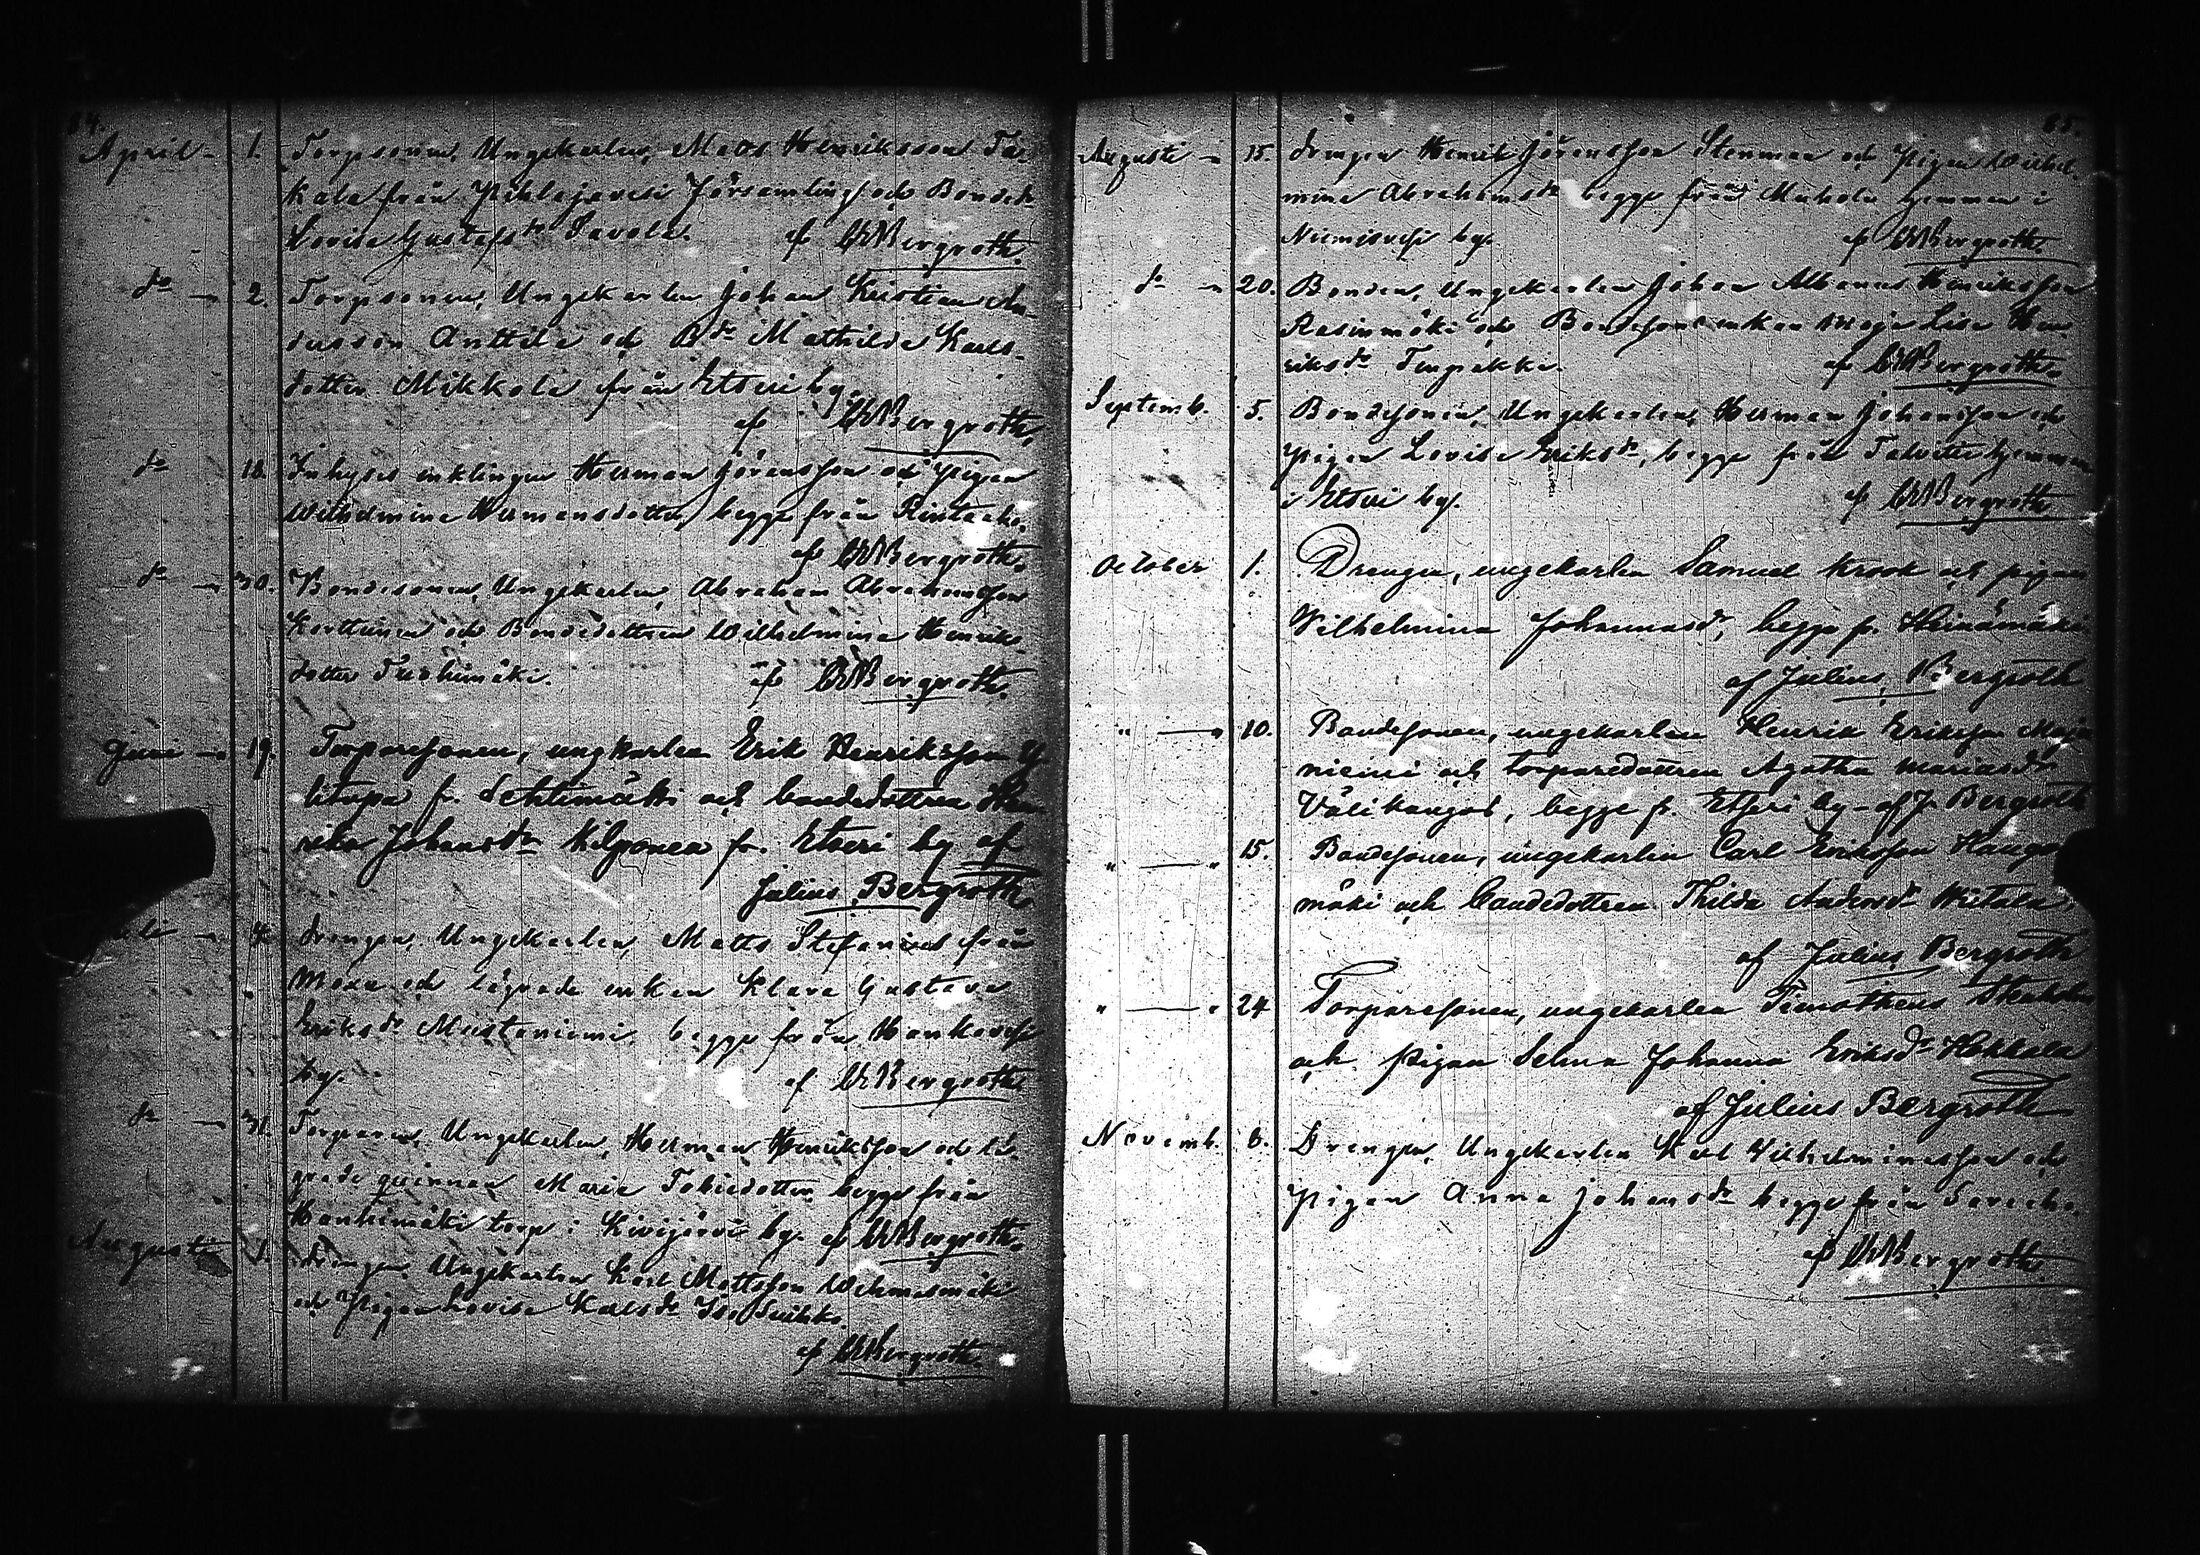 84.
April 1. Torpsonen, Ungekarlen, Matts Henriksson
från Pihlajavesi församling och Bonded.
Lovisa Gustafsdr Savola. af CWBergroth.
do 2. Torpsonen, Ungkarlen Johan Kristian An-
dersson Anttila och Bdr Mathilda Karls-
dotter Mikkola från Etseri by.
af CWBergroth.
do 18. Inhyses enklingen Herman Jöransson och Pigan
Wilhelmina Hermansdotter, begge från
af CWBergroth.
do 30. Bondesonen, Ungkarlen, Abraham Abrahamsson
Korttunen och Bondedottren Wilhelmina Henriks-
dotter Tuohimäki. af CWBergroth.
Juni 19. Torparesonen, ungkarlen Erik Henriksson
fr. Lehtimäki och bondedottren Hen-
rika Johansdr Kilponen fr. Etseri by af
Julius Bergroth
drengen, Ungekarlen, Matts Stefanus från
och lägrade enkan Klara Gustava
Eriksdr Mustaniemi, begge från
by. af CWBergroth
do 31. Torparen, Ungekarlen, Herman Henriksson och lä-
grade qvinnan Maria Tobiedotter begge från
Hankimäki torp i Kivijärvi by. af CWBergroth.
Augusti drengen, Ungekarlen Karl Mattsson Wehmasmäki
och Pigan Lovisa Karlsdr
af CWBergroth.
85.
Augusti 15. drengen Henrik Jöransson Stenman och Pigan Wilhel-
mina Abrahamsdr begge från hemman i
Niemisvesi by. af CWBergroth.
do 20. Bonden, Ungekarlen Johan Albanus Henriksson
Rasinmäki och Bondesonsenkan Maja Lisa Hen-
riksdr af CWBergroth.
Septemb. 5. Bondesonen, Ungekarlen, Herman Johansson och
Pigan Lovisa Eriksdr, begge från Talvitie hemman
i Etseri by. af CWBergroth
October 1. Drengen, ungekarlen Samuel Krook och pigan
Wilhelmina Johannasdr, begge fr. Heinämäki
af Julius Bergroth
" — " 10. Bondesonen, ungekarlen Henrik Eriksson
niemi och torparedottren Agatha Mariasdr
Välikangas, begge fr. Etseri by — af J. Bergroth
" — " 15. Bondesonen, ungekarlen Carl Eriksson
mäki och bondedottren Thilda Andersdr
af Julius Bergroth
" — " 24 Torparesonen, ungekarlen Timotheus
och Pigan Selma Johanna Eriksdr Hokkala
af Julius Bergroth
Novemb. 8. Drengen, Ungekarlen Karl Wilhelminasson och
Pigan Anna Johansdr begge från
af CWBergroth.